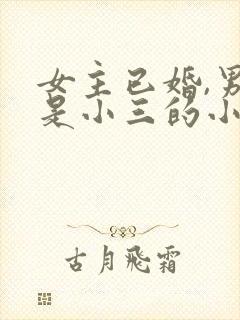 女主已婚,男
是小三的小
古月飛霜